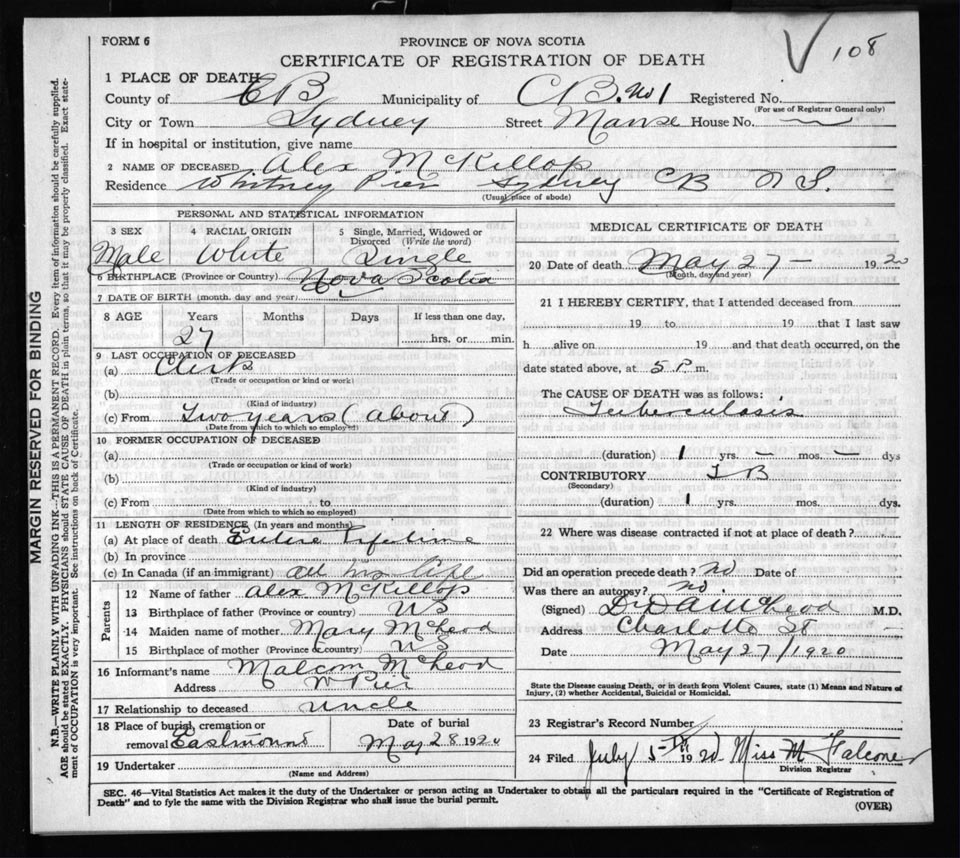 FORM 6
PROVINCE OF NOVA SCOTIA
CERTIFICATE OF REGISTRATION OF DEATH
108
1 PLACE OF DEATH
County of CB Municipality of CB. No 1 Registered No.
(For use of Registrar General only)
City or Town Sydney Street Manse House No.
If in hospital or institution, give name
2 NAME OF DECEASED Alex McKillop
Residence Whitney Pier Sydney CB N S.
(Usual place of abode)
PERSONAL AND STATISTICAL INFORMATION
3 SEX 4 RACIAL ORIGIN 5 Single, Married, Widowed or Divorced (Write the word)
Male White Single
6 BIRTHPLACE (Province or Country) Nova Scotia
7 DATE OF BIRTH (month, day and year)
8 AGE Years Months Days If less than one day,
27 hrs. or min.
9 LAST OCCUPATION OF DECEASED
(a) Clerk
(Trade or occupation or kind or work)
(b)
(Kind of industry)
(c) From Two years (about)
(Date from which to which so employed)
10 FORMER OCCUPATION OF DECEASED
(a)
(Trade or occupation or kind of work)
(b)
(Kind of industry)
(c) From to
(Date from which to which so employed)
11 LENGTH OF RESIDENCE (In years and months)
(a) At place of death Entire Lifetime
(b) In province
(c) In Canada (if an immigrant) all his life
Parents
12 Name of father Alex McKillop
13 Birthplace of father (Province or country) NS
14 Maiden name of mother Mary McLeod
15 Birthplace of mother (Province or country) NS
16 Informant's name Malcom McLeod
Address W Pier
17 Relationship to deceased Uncle
18 Place of burial, cremation or removal Eastmount
Date of burial
May 28 1920
19 Undertaker
(Name and Address)
MEDICAL CERTIFICATE OF DEATH
20 Date of death May 27 – 1920
(Month, day and year)
21 I HEREBY CERTIFY, that I attended deceased from
19 to 19 that I last saw
h alive on 19 and that death occurred, on the
date stated above, at 5 P m.
The CAUSE OF DEATH was as follows:
Tuberculosis
(duration) 1 yrs. – mos. – dys
CONTRIBUTORY T B
(Secondary)
(duration) 1 yrs. mos. dys.
22 Where was disease contracted if not at place of death?
Did an operation precede death? no Date of
Was there an autopsy? no
(Signed) Dr D A McLeod M.D.
Address Charlotte St
Date May 27/1920
State the Disease causing Death, or in death from Violent Causes, state (1) Means and Nature of
Injury, (2) whether Accidental, Suicidal or Homicidal.
23 Registrar's Record Number
24 Filed July 5th 1920. Miss M Falconer
Division Registrar
SEC. 46—Vital Statistics Act makes it the duty of the Undertaker or person acting as Undertaker to obtain all the particulars required in the "Certificate of Registration of
Death" and to fyle the same with the Division Registrar who shall issue the burial permit.
(OVER)
MARGIN RESERVED FOR BINDING
N.B.—WRITE PLAINLY WITH UNFADING INK—THIS IS A PERMANENT RECORD. Every item of information should be carefully supplied.
AGE should be stated EXACTLY. PHYSICIANS should STATE CAUSE OF DEATH in plain terms, so that it may be properly classified. Exact state-
ment of OCCUPATION is very important. See instructions on back of Certificate.